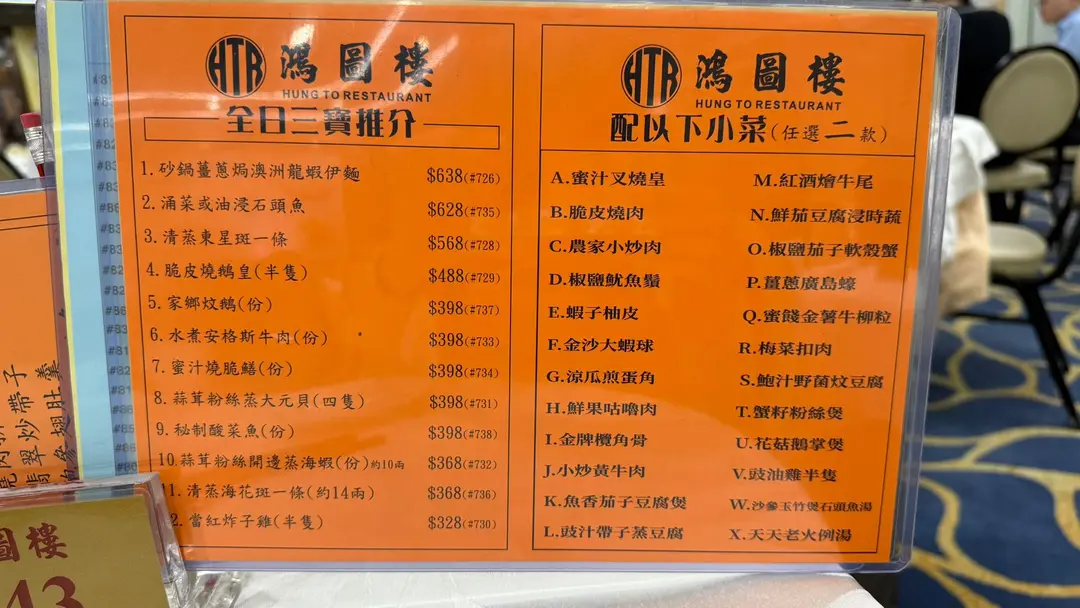 HTR 鴻圖樓
HUNG TO RESTAURANT
全日三寶推介
1.砂鍋薑蔥焗澳洲龍蝦伊麵 $638(#726)
2.涌菜或油浸石頭魚 $628(#735)
3.清蒸東星斑一條 $568(#728)
4.脆皮燒鵝皇(半隻) $488(#729)
5.家鄉炆鵝(份) $398(#737)
6.水煮安格斯牛肉(份) $398(#733)
7.蜜汁燒脆鱔(份) $398(#734)
8.蒜茸粉絲蒸大元貝(四隻) $398(#731)
9.秘制酸菜魚(份) $398(#738)
10.蒜茸粉絲開邊蒸海蝦(份)約10兩 $368(#732)
11.清蒸海花斑一條(約14兩) $368(#736)
2.當紅炸子雞(半隻) $328(#730)
HTR 鴻圖樓
HUNG TO RESTAURANT
配以下小菜(任選二款)
A.蜜汁叉燒皇
B.脆皮燒肉
C.農家小炒肉
D.椒鹽魷魚鬚
E.蝦子柚皮
F.金沙大蝦球
G.涼瓜煎蛋角
H.鮮果咕嚕肉
I.金牌欖角骨
J.小炒黃牛肉
K.魚香茄子豆腐煲
L.豉汁帶子蒸豆腐
M.紅酒燴牛尾
N.鮮茄豆腐浸時蔬
O.椒鹽茄子軟殼蟹
P.薑蔥廣島蠔
Q.蜜餞金薯牛柳粒
R.梅菜扣肉
S.鮑汁野菌炆豆腐
T.蟹籽粉絲煲
U.花菇鵝掌煲
V.豉油雞半隻
W.沙參玉竹煲石頭魚湯
X.天天老火例湯
炒帶子
翅肚羹
圖樓
43